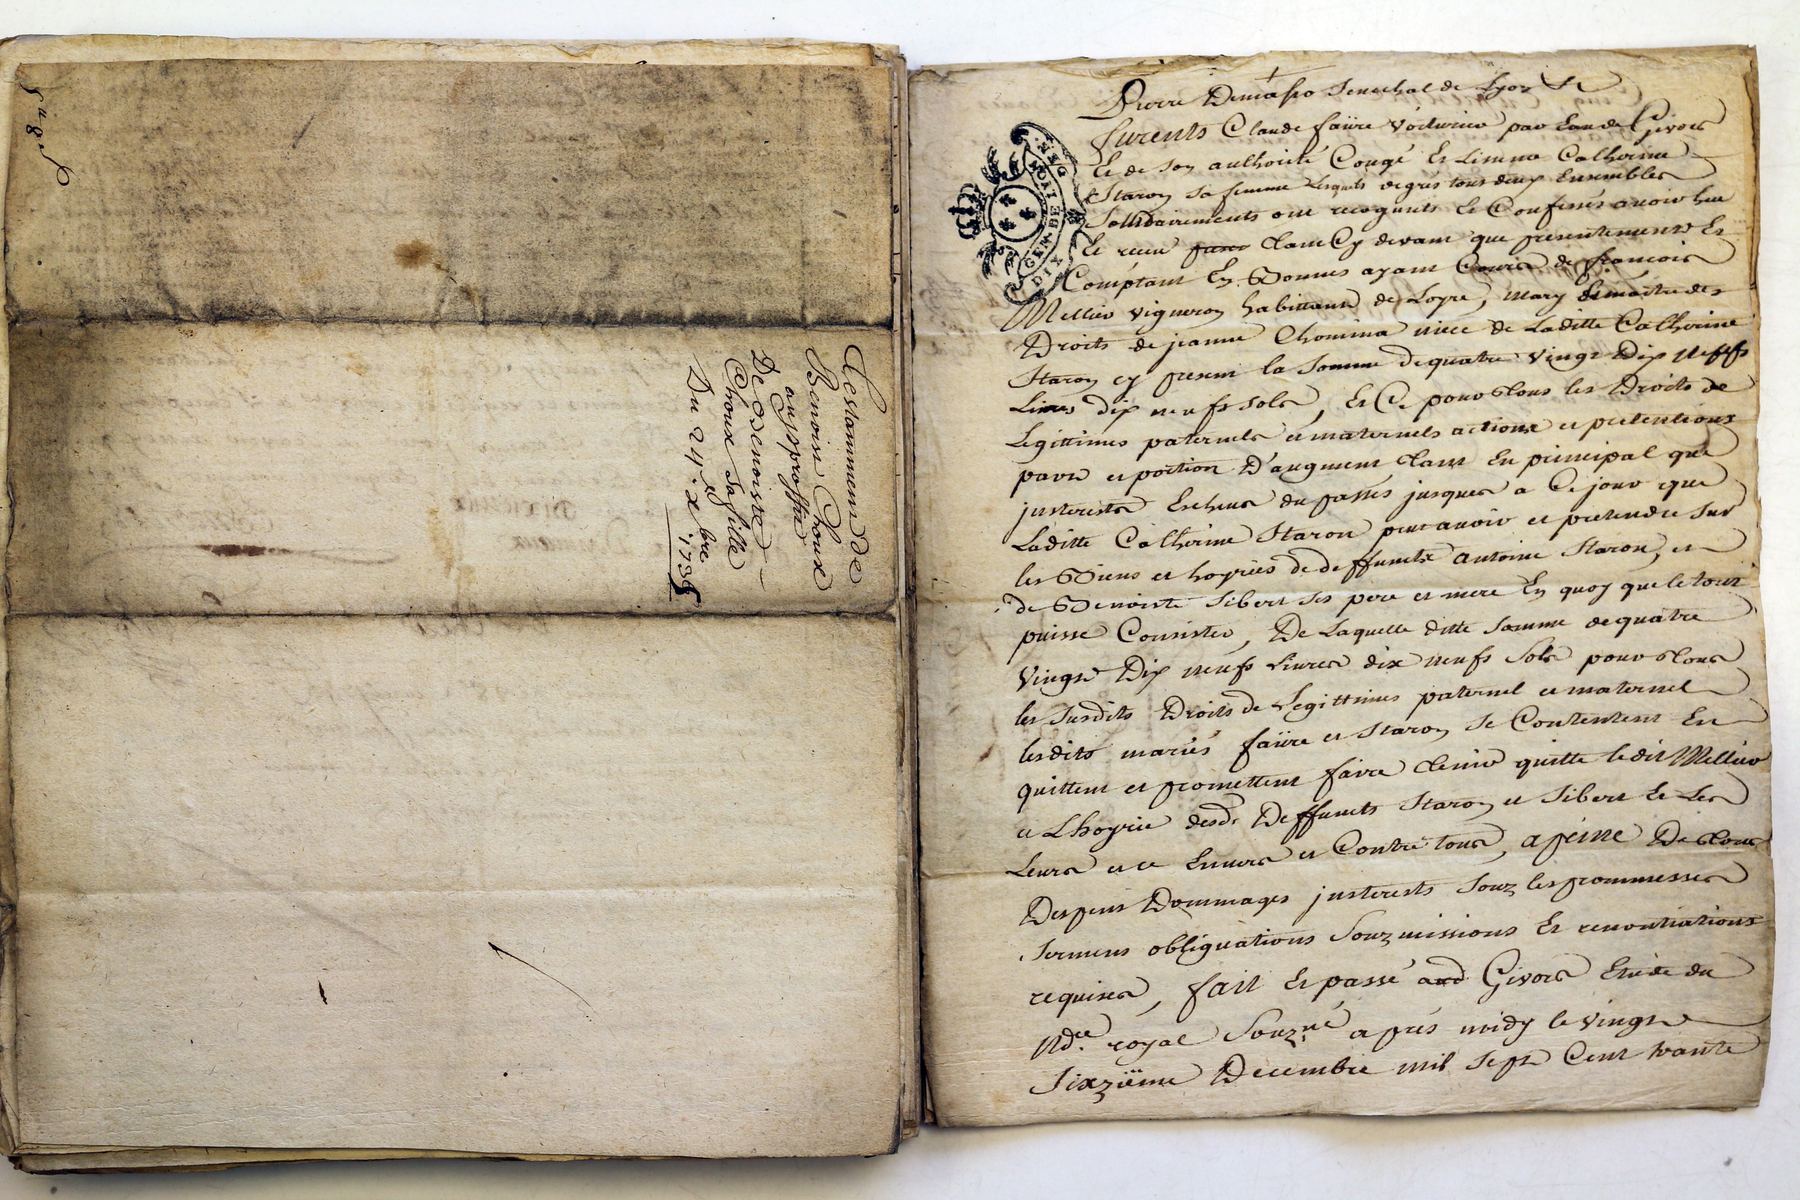 Testamment de
Benoist Choux
au proffit
De Benoiste
Choux sa fille
Du 24.e xbre 1736
GEN. DE LYON
DIX
Pierre Demasso Senechal de Lyon
furents Claude faure voiturier par Eau de Givors
Et de son authorité Congé Et Licence Catherine
Staron sa femme Lesquels degrés tous deux Ensembles
Sollidairements ont recoquints Et Confessés avoir heu
Et receu tant Cy devant que presentements Et
Comptant En Bonnes ayant Cours de françois
Mellier vigneron habittant de Loyre, mary Et maitre des
Droits de jeanne Chomina niece de Laditte Catherine
Staron cy present la somme de quatre vingt Dix neufs
Livres dix neufs sols, Et Ce pour tous les Droits de
Legittimes paternels et maternels actions et pretentions
part et portion D'augment tant En principal que
justerests Escheus du passés jusques a Ce jour que
Laditte Catherine Staron peut avoir et pretendre sur
les Biens et hoyries de deffuncts antoine Staron, et
de Benoiste Sibert ses pere et mere En quoy que le tout
puisse Consister, De Laquelle ditte somme de quatre
vingt Dix neufs Livres dix neufs Sols pour tous
les susdits Droits de Legittimes paternel et maternel
lesdits mariés faure et Staron se Contentent En
quittent et promettent faire tenir quitte ledit Mellier
et Lhoyrie desd. Deffuncts Staron et Sibert Et Les
Leurs et ce Envers et Contre tous, a peine De tous
Despens Dommages justerests souz les prommesses
sermens obliguations Souzmissions Et renontiations
requises, fait Et passé aud Givors Etude du
Nd.re royal Souz.né apres midy le vingt
Sixziéme Decembre mil sept Cent trante